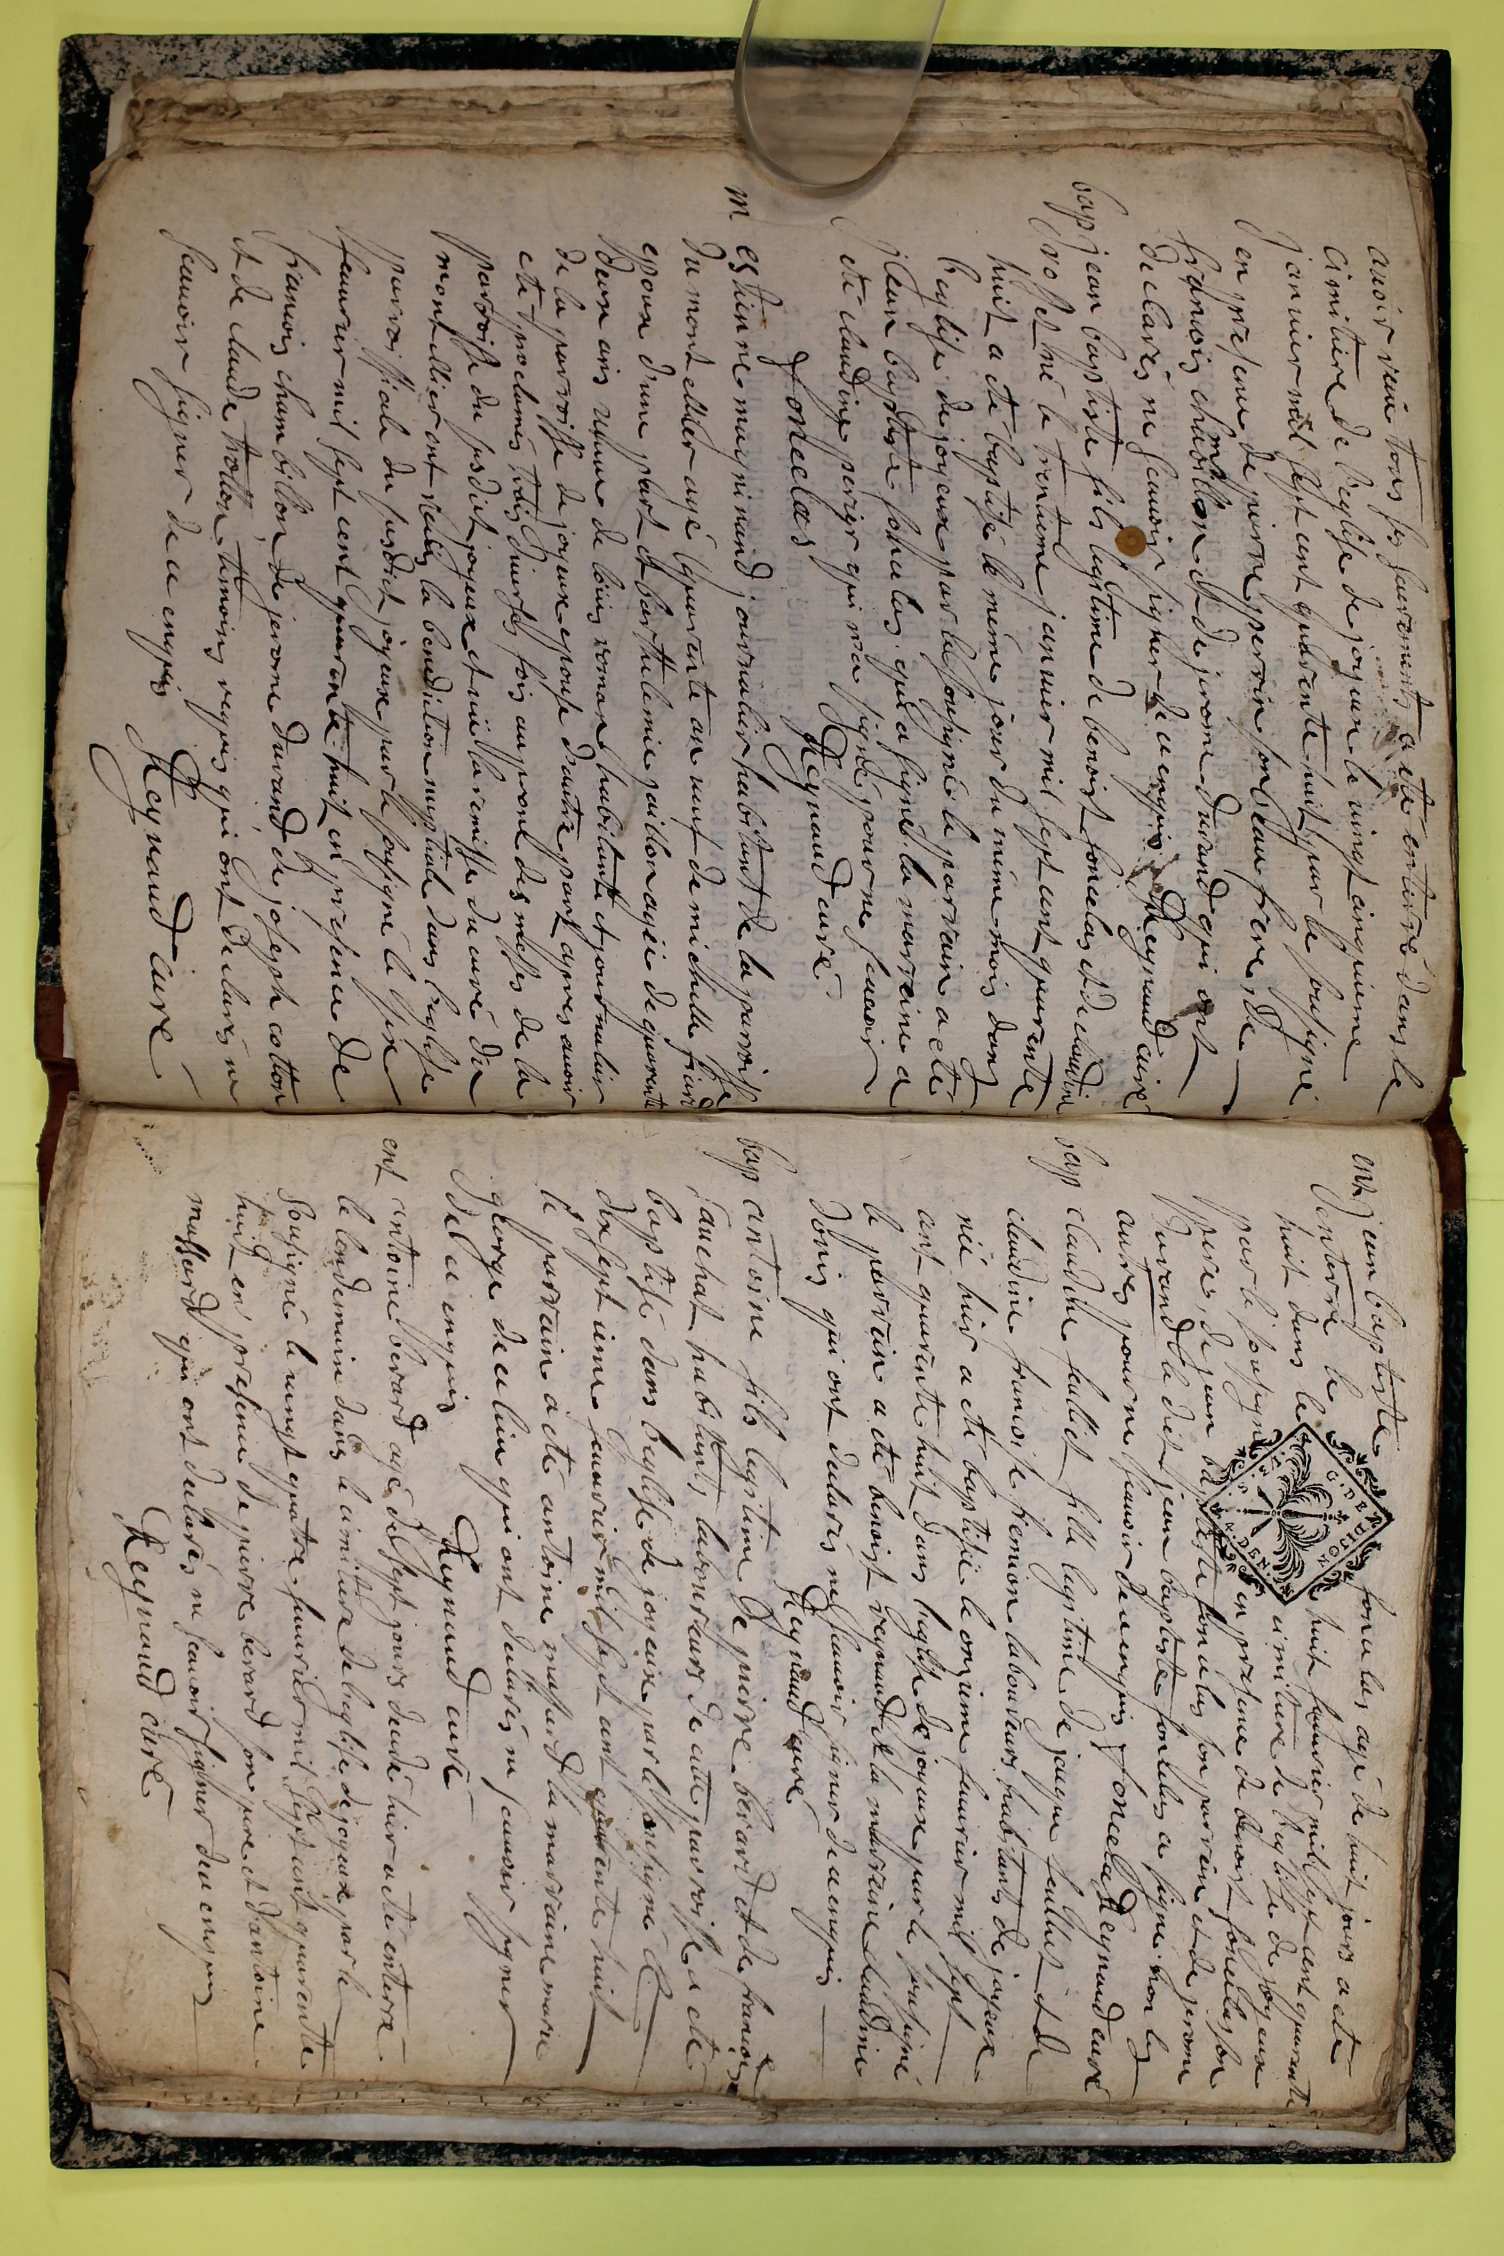 avoir receu tous ses sacrements a eté enterré dans le
cimitiere de l'eglise de joyeux le vingt cinquieme
janvier mil sept cent quarente huit par le soussigné
en presence de pierre perrin son beau frere, de
francois chambillon et de jerome durand qui ont
declarés ne scavoir signer de ce enquis Reynaud curé
bap jean baptiste fils legitime de benoist foncelas et de claudine
né le trentieme janvier mil sept cent quarente
huit a eté baptisé le même jour du même mois dans
l'eglise de joyeux par le soussigné le parrain a eté
jean baptiste foncelas qui a signé la marraine a
eté claudine perier qui n'a signé pour ne scavoir
foncelas Reynaud curé
m estienne mayninaud journalier habitant de la parroisse
du montellier agé quarente an veuf de michelle
epoux d'une part et barthelemie paillon agée de quarente
deux ans veuve de louis habitante et journaliere
de la parroisse de joyeux epouse d'autre part apres avoir
eté proclamés trois diverses fois au prone des messes de la
parroisse du susdit joyeux et veu la remisse du curé du
montellier ont receus la benediction nuptiale dans l'eglise
parroissiale du susdict joyeux par le soussigné le
feuvrier mil sept cent quarente huit en presence de
francois chambillon de jerome durand de joseph cotton
et de claude trollon temoins requis qui ont declarés ne
scavoir signer de ce enquis Reynaud curé
ent jean baptiste foncelas agé de huit jours a eté
enterré le huit feuvrier mil sept cent quarente
huit dans le cimitiere de l'eglise de joyeux
par le soussigné en presence de benoist foncelas son
pere, de jean baptiste foncelas son parrein et de jerome
durand le dit jean baptiste foncelas a signé non les
autres pour ne scavoir de ce enquis foncelas Reynaud curé
G. DE LION
DEN.
bap claudine feullet fille legitime de jaque feullet et de
claudine francoise fremion laboureurs habitants de joyeux
née hier a eté baptisée le onzieme feuvrier mil sept
cent quarente huit dans l'eglise de joyeux par le soussigné
le parrein a eté benoist reynaud et la marraine claudine
donis qui ont declarés ne scavoir signer de ce enquis
Reynaud curé
bap antoine fils legitime de pierre berard et de francoise
lauchat habitants laboureurs de cette parroisse a eté
baptisé dans l'eglise de joyeux par le soussigné le
dix septieme feuvrier mil sept cent quarente huit
le parrain a eté antoine massard la marraine marie
george de ce lieu qui ont declarés ne scavoir signer
de ce enquis Reynaud curé
ent antoine berard agé de sept jours decedé hier a eté enterré
le lendemain dans le cimitiere de l'eglise de joyeux par le
soussigné le vingt quatre feuvrier mil sept cent quarente
huit en presence de pierre berard son pere et d'antoine
massard qui ont declarés ne scavoir signer de ce enquis
Reynaud curé